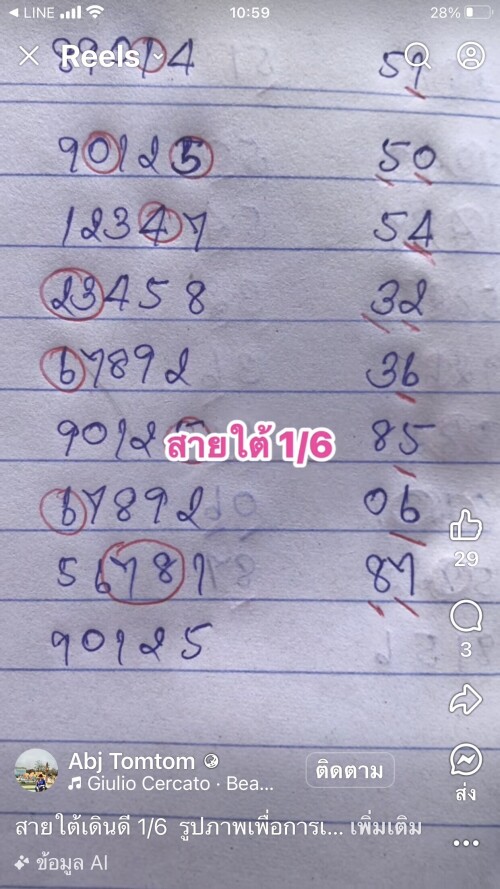 LINE 10:59 28%
Reels
59
90125 50
12347 54
23458 32
67892 36
9012 85
สายใต้ 1/6
67892 06
56787 87
90125
29
3
ส่ง
Abj Tomtom
Giulio Cercato · Bea...
ติดตาม
สายใต้เดินดี 1/6 รูปภาพเพื่อการเ... เพิ่มเติม
ข้อมูล AI